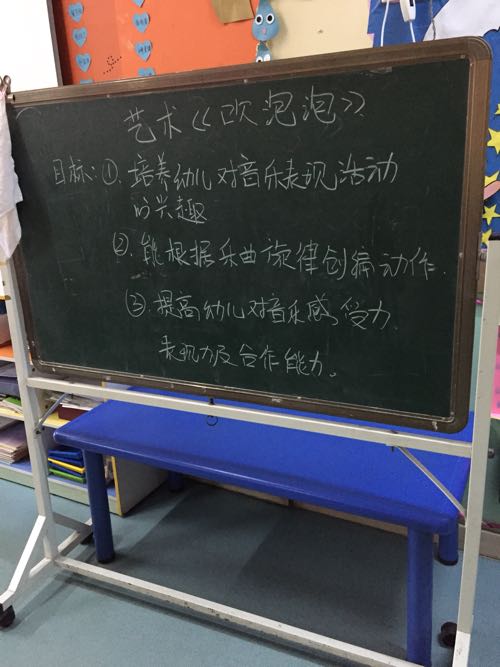 艺术《吹泡泡》
目标:①.培养幼儿对音乐表现活动
的兴趣
②.能根据乐曲旋律创编动作.
③.提高幼儿对音乐感受力.
表现力及合作能力。